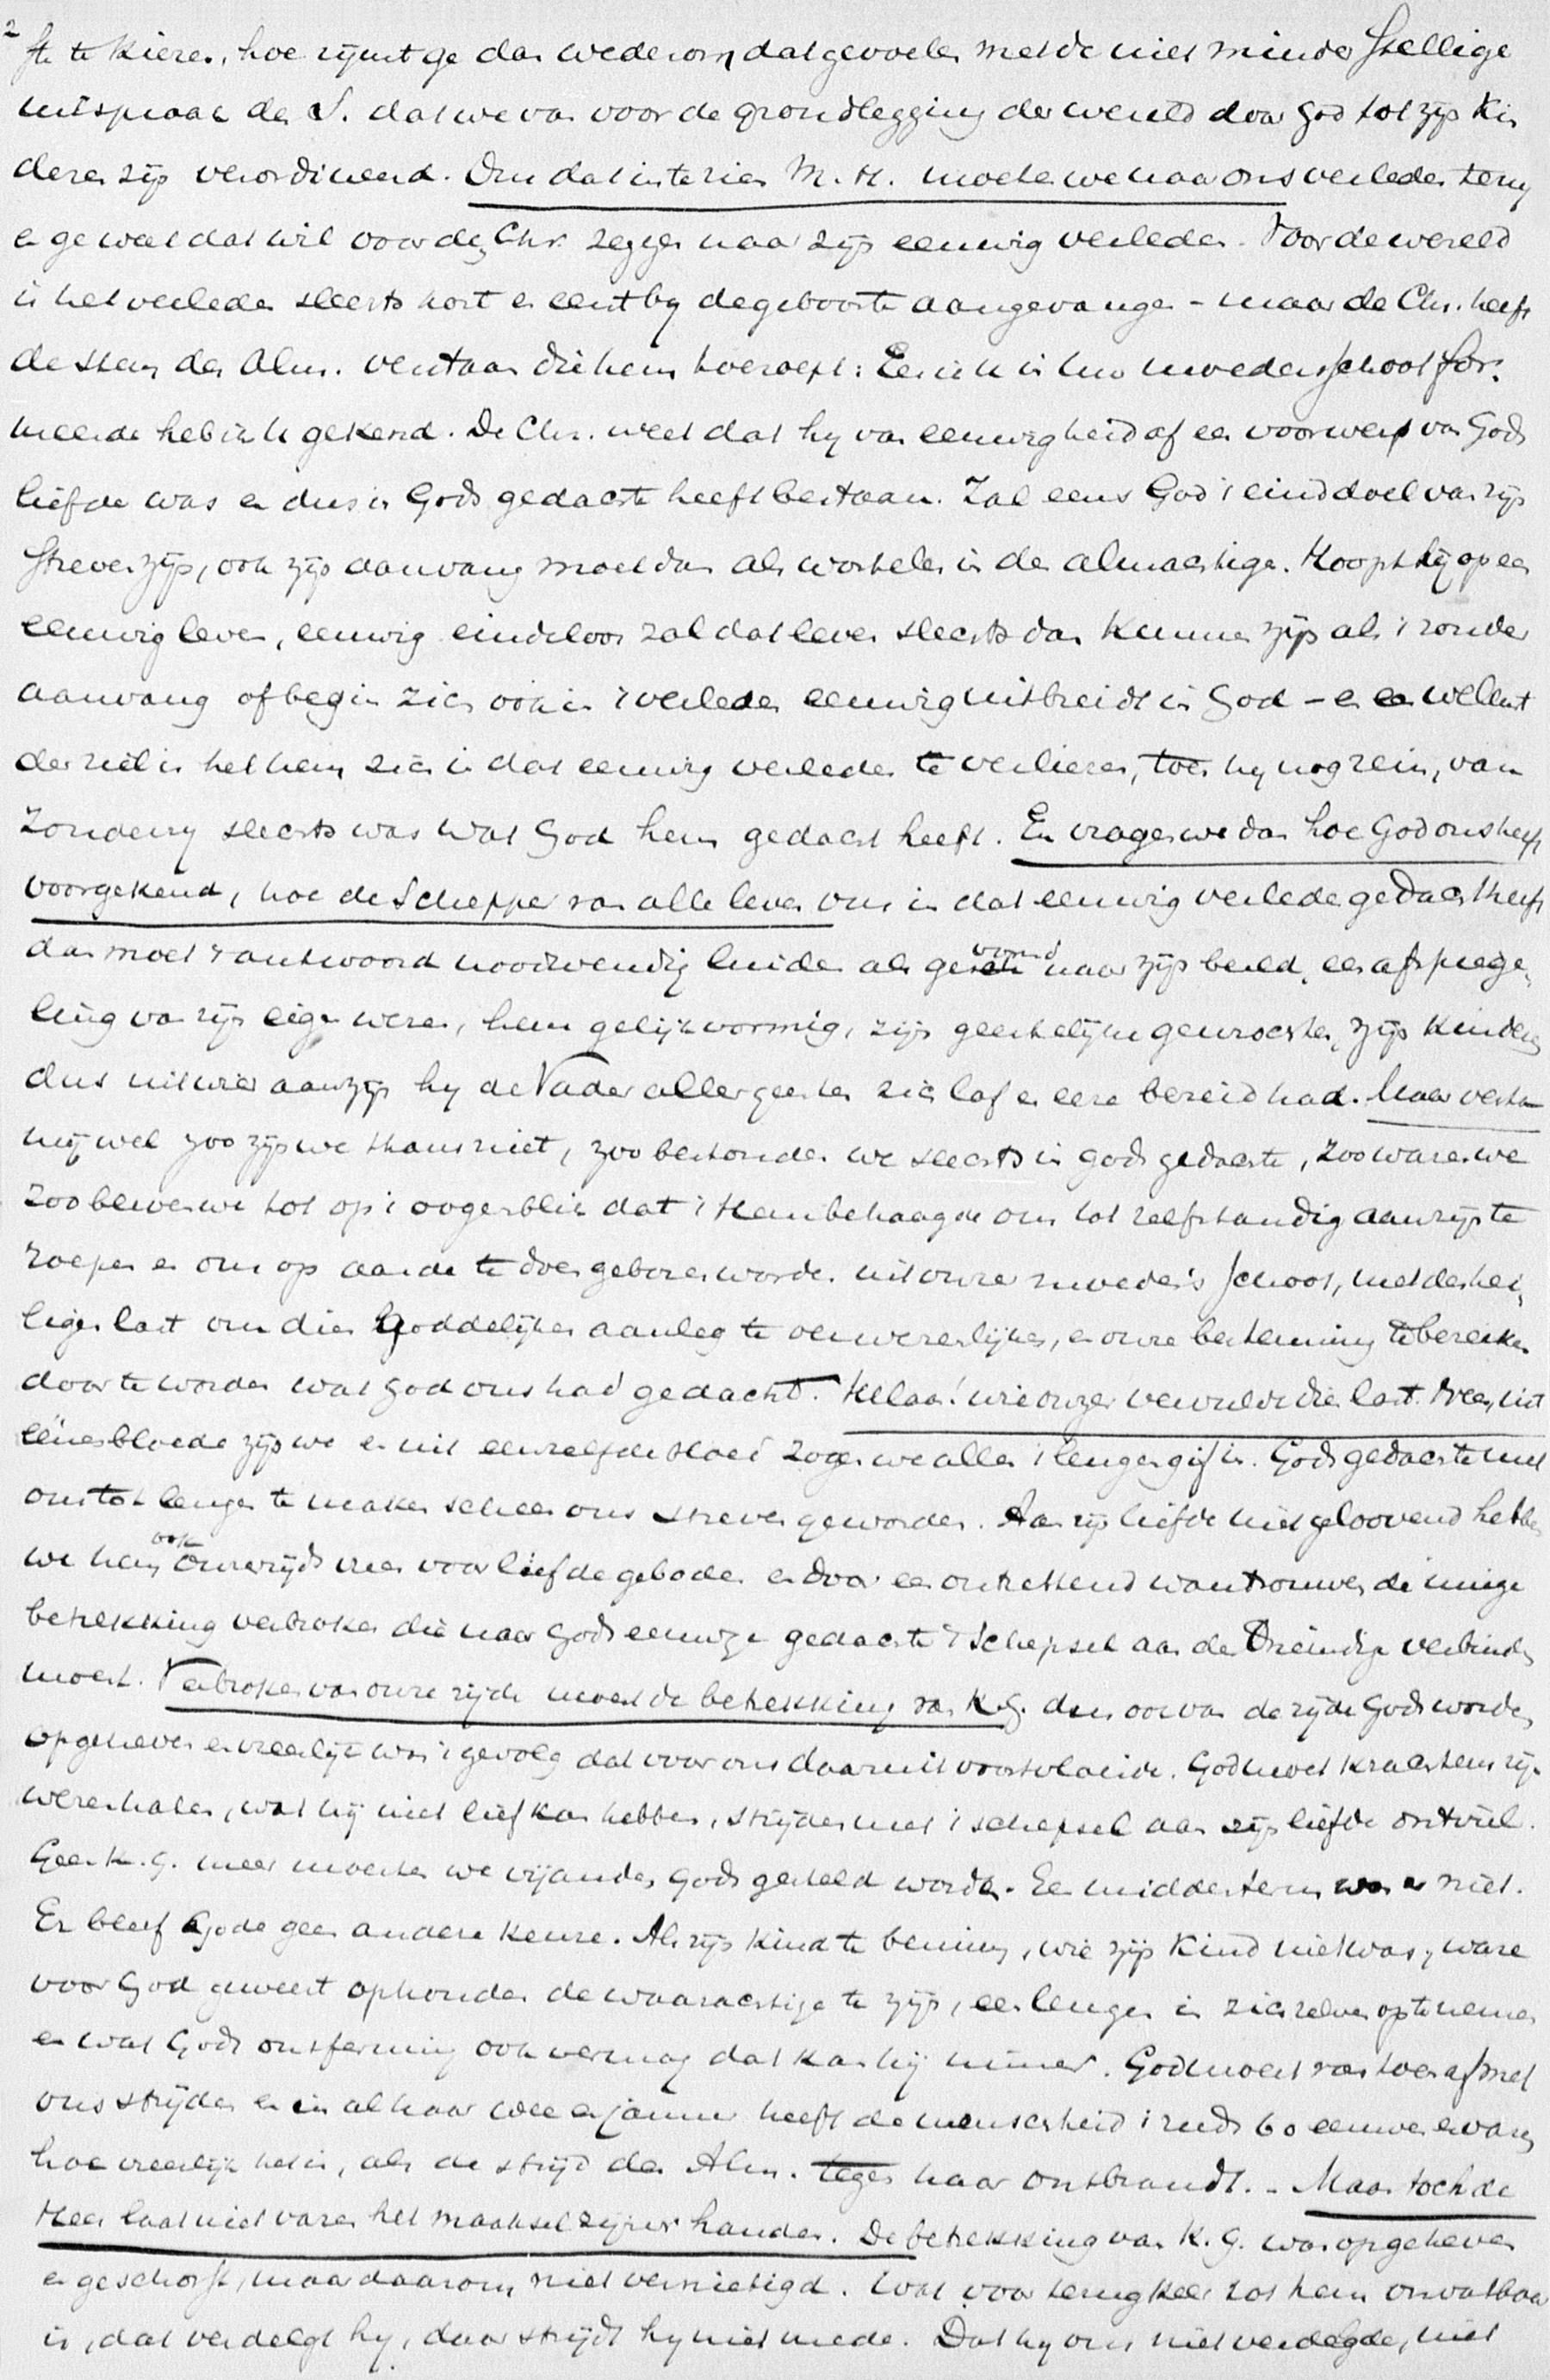 2
te kiezen, hoe rijmt ge dan wederom dat gevoelen met de niet minder stellige
uitspraak der S. dat we van voor de grondlegging der wereld door God tot zijn kin
deren zijn verordineerd. Om dat in te zien M. H. moeten we naar ons verleden terug
en ge weet dat wil voor den Chr. zeggen naar zijn eeuwig verleden. Voor de wereld
is het verleden slechts kort en eerst by de geboorte aangevangen – maar de Chr. heeft
de stem des Alm. verstaan die hem toeroept: Eer ik u in uw moeders schoot for-
meerde heb ik u gekend. De Chr. weet dat hy van eeuwigheid af een voorwerp van Gods
liefde was en dus in Gods gedachte heeft bestaan. Zal eens God 't einddoel van zijn
streven zijn, ook zijn aanvang moet dan als wortelen in den almachtige. Hoopt hij op een
eeuwig leven, eeuwig eindeloos zal dat leven slechts dan kunnen zijn als 't zonder
aanvang of begin zich ook in 't verleden eeuwig uitbreidt in God – en een wellust
der ziel is het hem zich in dat eeuwig verleden te verliezen, toen hy nog rein, van
zonden vry slechts was wat God hem gedacht heeft. En vragen we dan hoe God ons heeft
voorgekend, hoe de Schepper van alle leven ons in dat eeuwig verleden gedacht heeft
dan moet 't antwoord noodwendig luiden als gevormd naar zijn beeld, een afspiege-
ling van zijn eigen wezen, hem gelijkvormig, zijn geestelijke gewrochten, zijn kinderen
dus uit wier aanzijn hy de Vader aller geesten zich lof en eere bereid had. Maar versta
mij wel zoo zijn we thans niet, zoo bestonden we slechts in Gods gedachte, zoo waren we
zoo bleven we tot op 't oogenblik dat 't Hem behaagde ons tot zelfstandig aanzijn te
roepen en ons op aarde te doen geboren worden uit onze moeders schoot, met den hei-
ligen last om dien Goddelijken aanleg te verwezenlijken, en onze bestemming te bereiken
door te worden wat God ons had gedacht. Helaas! wie onzer vervulde dien last. Neen, uit
éénen bloede zijn we en uit eenzelfde bloed zogen we allen 't leugengif in. Gods gedachte met
ons tot leugen te maken scheen ons streven geworden. Aan zijn liefde niet geloovend hebben
we hem ook onzerzijds vrees voor liefde geboden en door een ontzettend wantrouwen de innige
betrekking verbroken die naar Gods eeuwige gedachte 't schepsel aan den Drieëenige verbinden
moest. Verbroken van onze zijde moest de betrekking van K. G. dus ook van de zijde Gods worden
opgeheven en vreeslijk was 't gevolg dat voor ons daaruit voortvloeide. God moet krachtens zijn
wezen haten, wat hij niet lief kan hebben, strijden met 't schepsel aan zijn liefde ontviel.
Geen K. G. meer moesten we vijanden Gods gesteld worden. Een middenterm was er niet.
Er bleef Gode geen andere keuze. Als zijn kind te beminnen, wie zijn kind niet was, ware
voor God geweest ophouden de waarachtige te zijn, een leugen in zichzelven op te nemen
en wat Gods ontferming ook vermag dat kan hij nimmer. God moest van toen af met
ons strijden en in al haar wee en jammer heeft de menschheid 't reeds 60 eeuwen ervaren
hoe vreeslijk het is, als de strijd des Alm. tegen haar ontbrandt. – Maar toch de
Heer laat niet varen het maaksel zijner handen. De betrekking van K. G. was opgeheven
en geschorst, maar daarom niet vernietigd. Wat voor terugkeer tot hem onvatbaar
is, dat verdelgt hy, daar strijdt hy niet mede. Dat hy ons niet verdelgde, niet